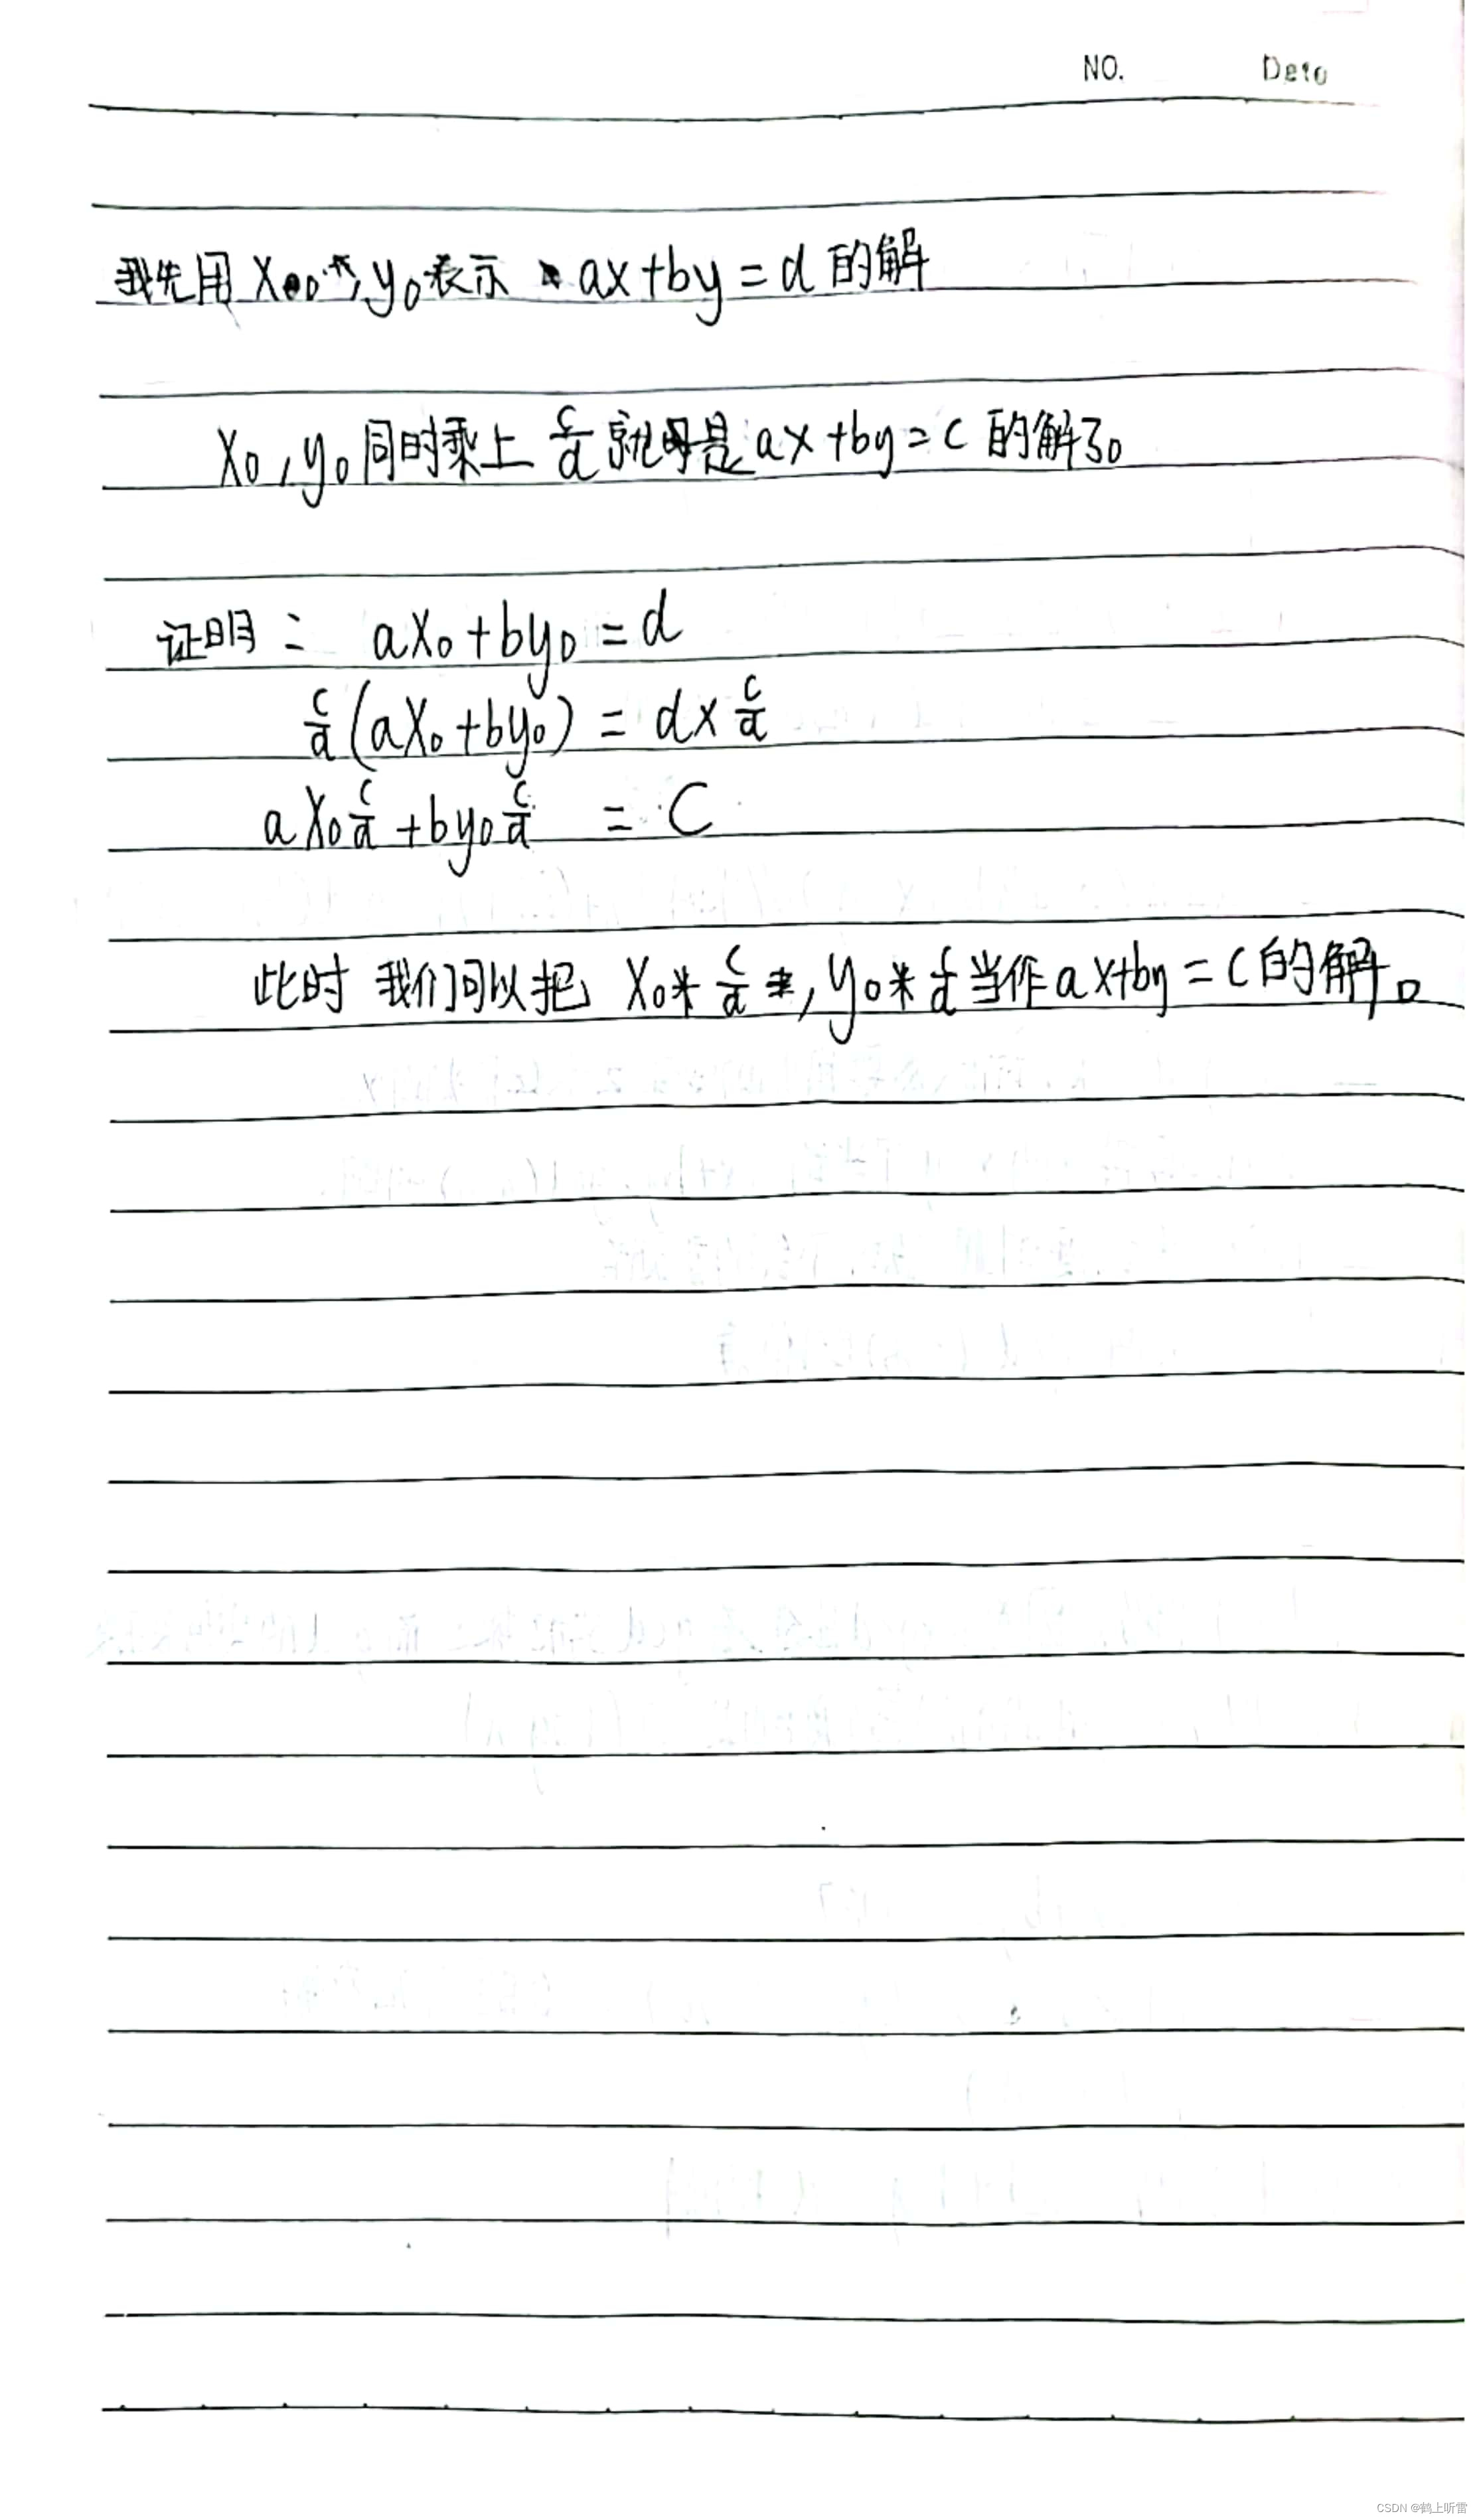 NO. Date
我先用 x₀, y₀ 表示 ax+by=d 的解
x₀, y₀ 同时乘上 c/d 就是 ax+by=c 的解了。
证明: ax₀+by₀=d
c/d(ax₀+by₀)=d×c/d
ax₀c/d+by₀c/d=c
此时 我们可以把 x₀*c/d, y₀*c/d 当作 ax+by=c 的解。
CSDN @鹤上听雷